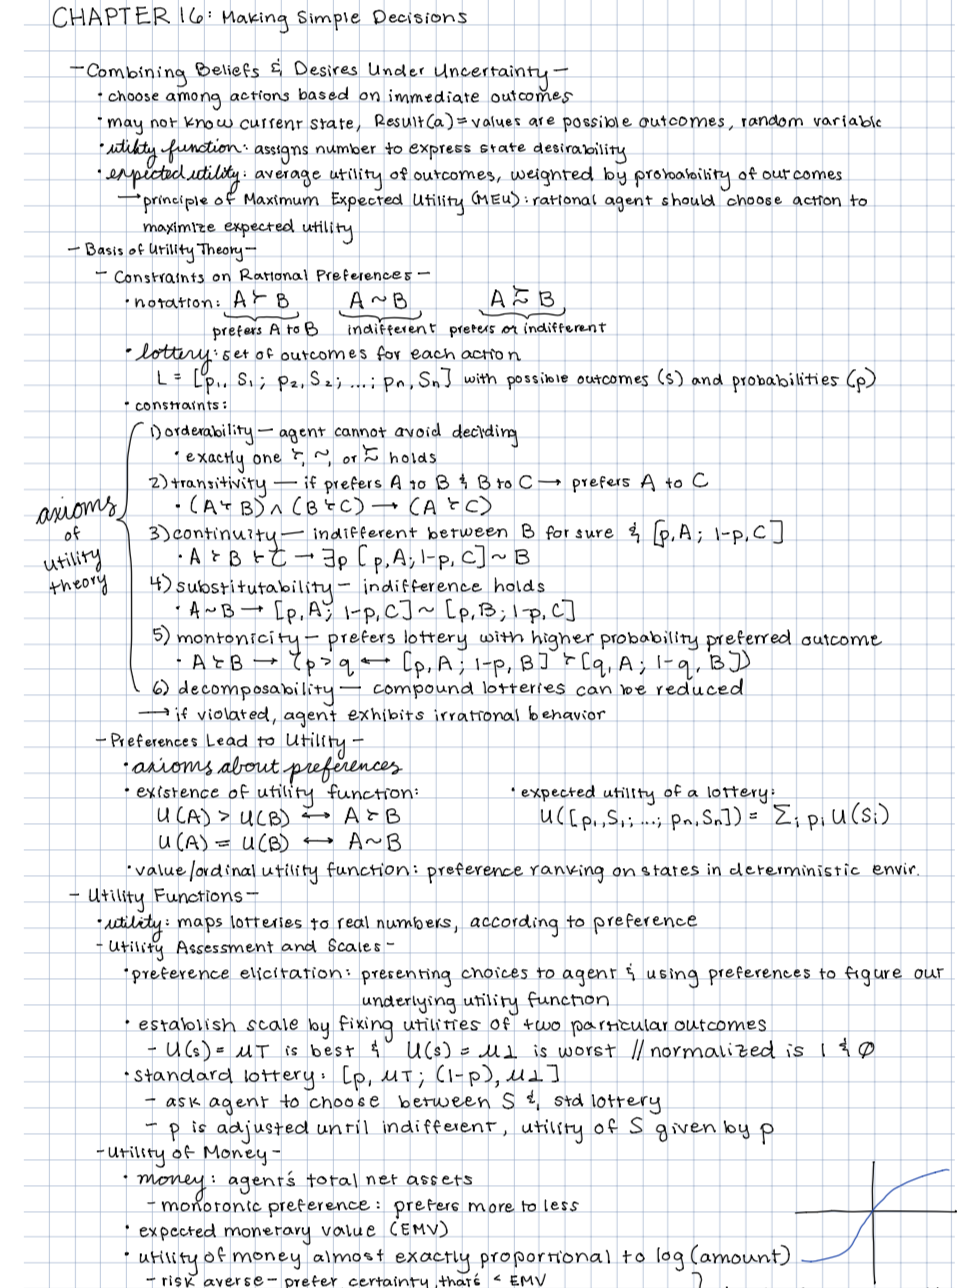 CHAPTER 16: Making Simple Decisions
- Combining Beliefs & Desires Under Uncertainty -
• choose among actions based on immediate outcomes
• may not know current state, Result(a) = values are possible outcomes, random variable
• utility function: assigns number to express state desirability
• expected utility: average utility of outcomes, weighted by probability of outcomes
→ principle of Maximum Expected Utility (MEU): rational agent should choose action to
maximize expected utility
- Basis of Utility Theory -
- Constraints on Rational Preferences -
• notation: A ≻ B A ~ B A ≿ B
prefers A to B indifferent prefers or indifferent
• lottery: set of outcomes for each action
L = [p₁, S₁; p₂, S₂; ...; pn, Sn] with possible outcomes (s) and probabilities (p)
• constraints:
1) orderability — agent cannot avoid deciding
• exactly one ≻, ~, or ≿ holds
2) transitivity — if prefers A to B & B to C → prefers A to C
• (A ≻ B) ∧ (B ≻ C) → (A ≻ C)
axioms
of
utility
theory
3) continuity — indifferent between B for sure & [p, A; 1-p, C]
• A ≻ B ≻ C → ∃p [p, A; 1-p, C] ~ B
4) substitutability — indifference holds
• A ~ B → [p, A; 1-p, C] ~ [p, B; 1-p, C]
5) montonicity — prefers lottery with higher probability preferred outcome
• A ≻ B → (p > q ↔ [p, A; 1-p, B] ≻ [q, A; 1-q, B])
6) decomposability — compound lotteries can be reduced
→ if violated, agent exhibits irrational behavior
- Preferences Lead to Utility -
• axioms about preferences
• existence of utility function:
U(A) > U(B) ↔ A ≻ B
U(A) = U(B) ↔ A ~ B
• expected utility of a lottery:
U([p₁, S₁; ...; pn, Sn]) = Σi pi U(Si)
• value/ordinal utility function: preference ranking on states in deterministic envir.
- Utility Functions -
• utility: maps lotteries to real numbers, according to preference
- Utility Assessment and Scales -
• preference elicitation: presenting choices to agent & using preferences to figure out
underlying utility function
• establish scale by fixing utilities of two particular outcomes
- U(s) = μ⊤ is best & U(s) = μ⊥ is worst // normalized is 1 & 0
• standard lottery: [p, μ⊤; (1-p), μ⊥]
- ask agent to choose between S & std lottery
- p is adjusted until indifferent, utility of S given by p
- Utility of Money -
• money: agent's total net assets
- monotonic preference: prefers more to less
• expected monetary value (EMV)
• utility of money almost exactly proportional to log(amount)
- risk averse - prefer certainty, that's < EMV